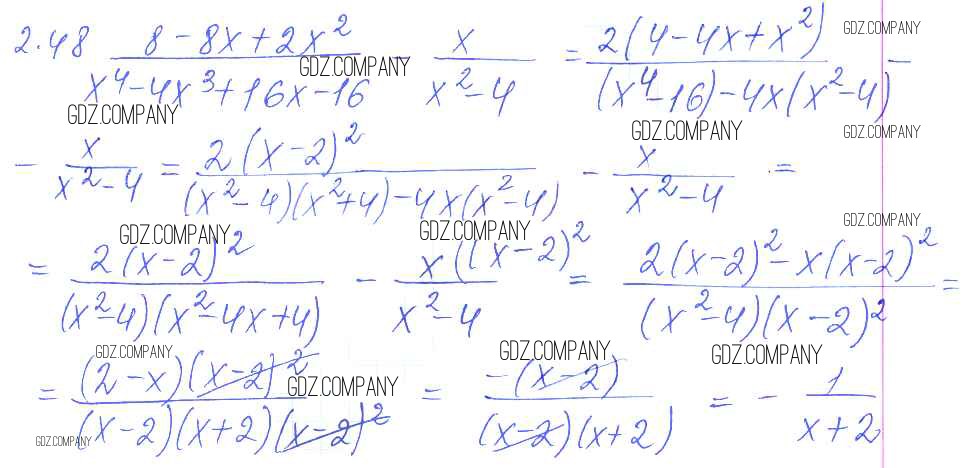 2.48 (8 - 8x + 2x²)/(x⁴ - 4x³ + 16x - 16) - x/(x² - 4) = 2(4 - 4x + x²)/((x⁴ - 16) - 4x(x² - 4)) -
- x/(x² - 4) = 2(x - 2)²/((x² - 4)(x² + 4) - 4x(x² - 4)) - x/(x² - 4) =
= 2(x - 2)²/((x² - 4)(x² - 4x + 4)) - x((x - 2)²/(x² - 4) = (2(x - 2)² - x(x - 2)²)/((x² - 4)(x - 2)²) =
= (2 - x)(x - 2)²/((x - 2)(x + 2)(x - 2)²) = -(x - 2)/((x - 2)(x + 2)) = - 1/(x + 2)
GDZ.COMPANY
GDZ.COMPANY
GDZ.COMPANY
GDZ.COMPANY
GDZ.COMPANY
GDZ.COMPANY
GDZ.COMPANY
GDZ.COMPANY
GDZ.COMPANY
GDZ.COMPANY
GDZ.COMPANY
GDZ.COMPANY
GDZ.COMPANY